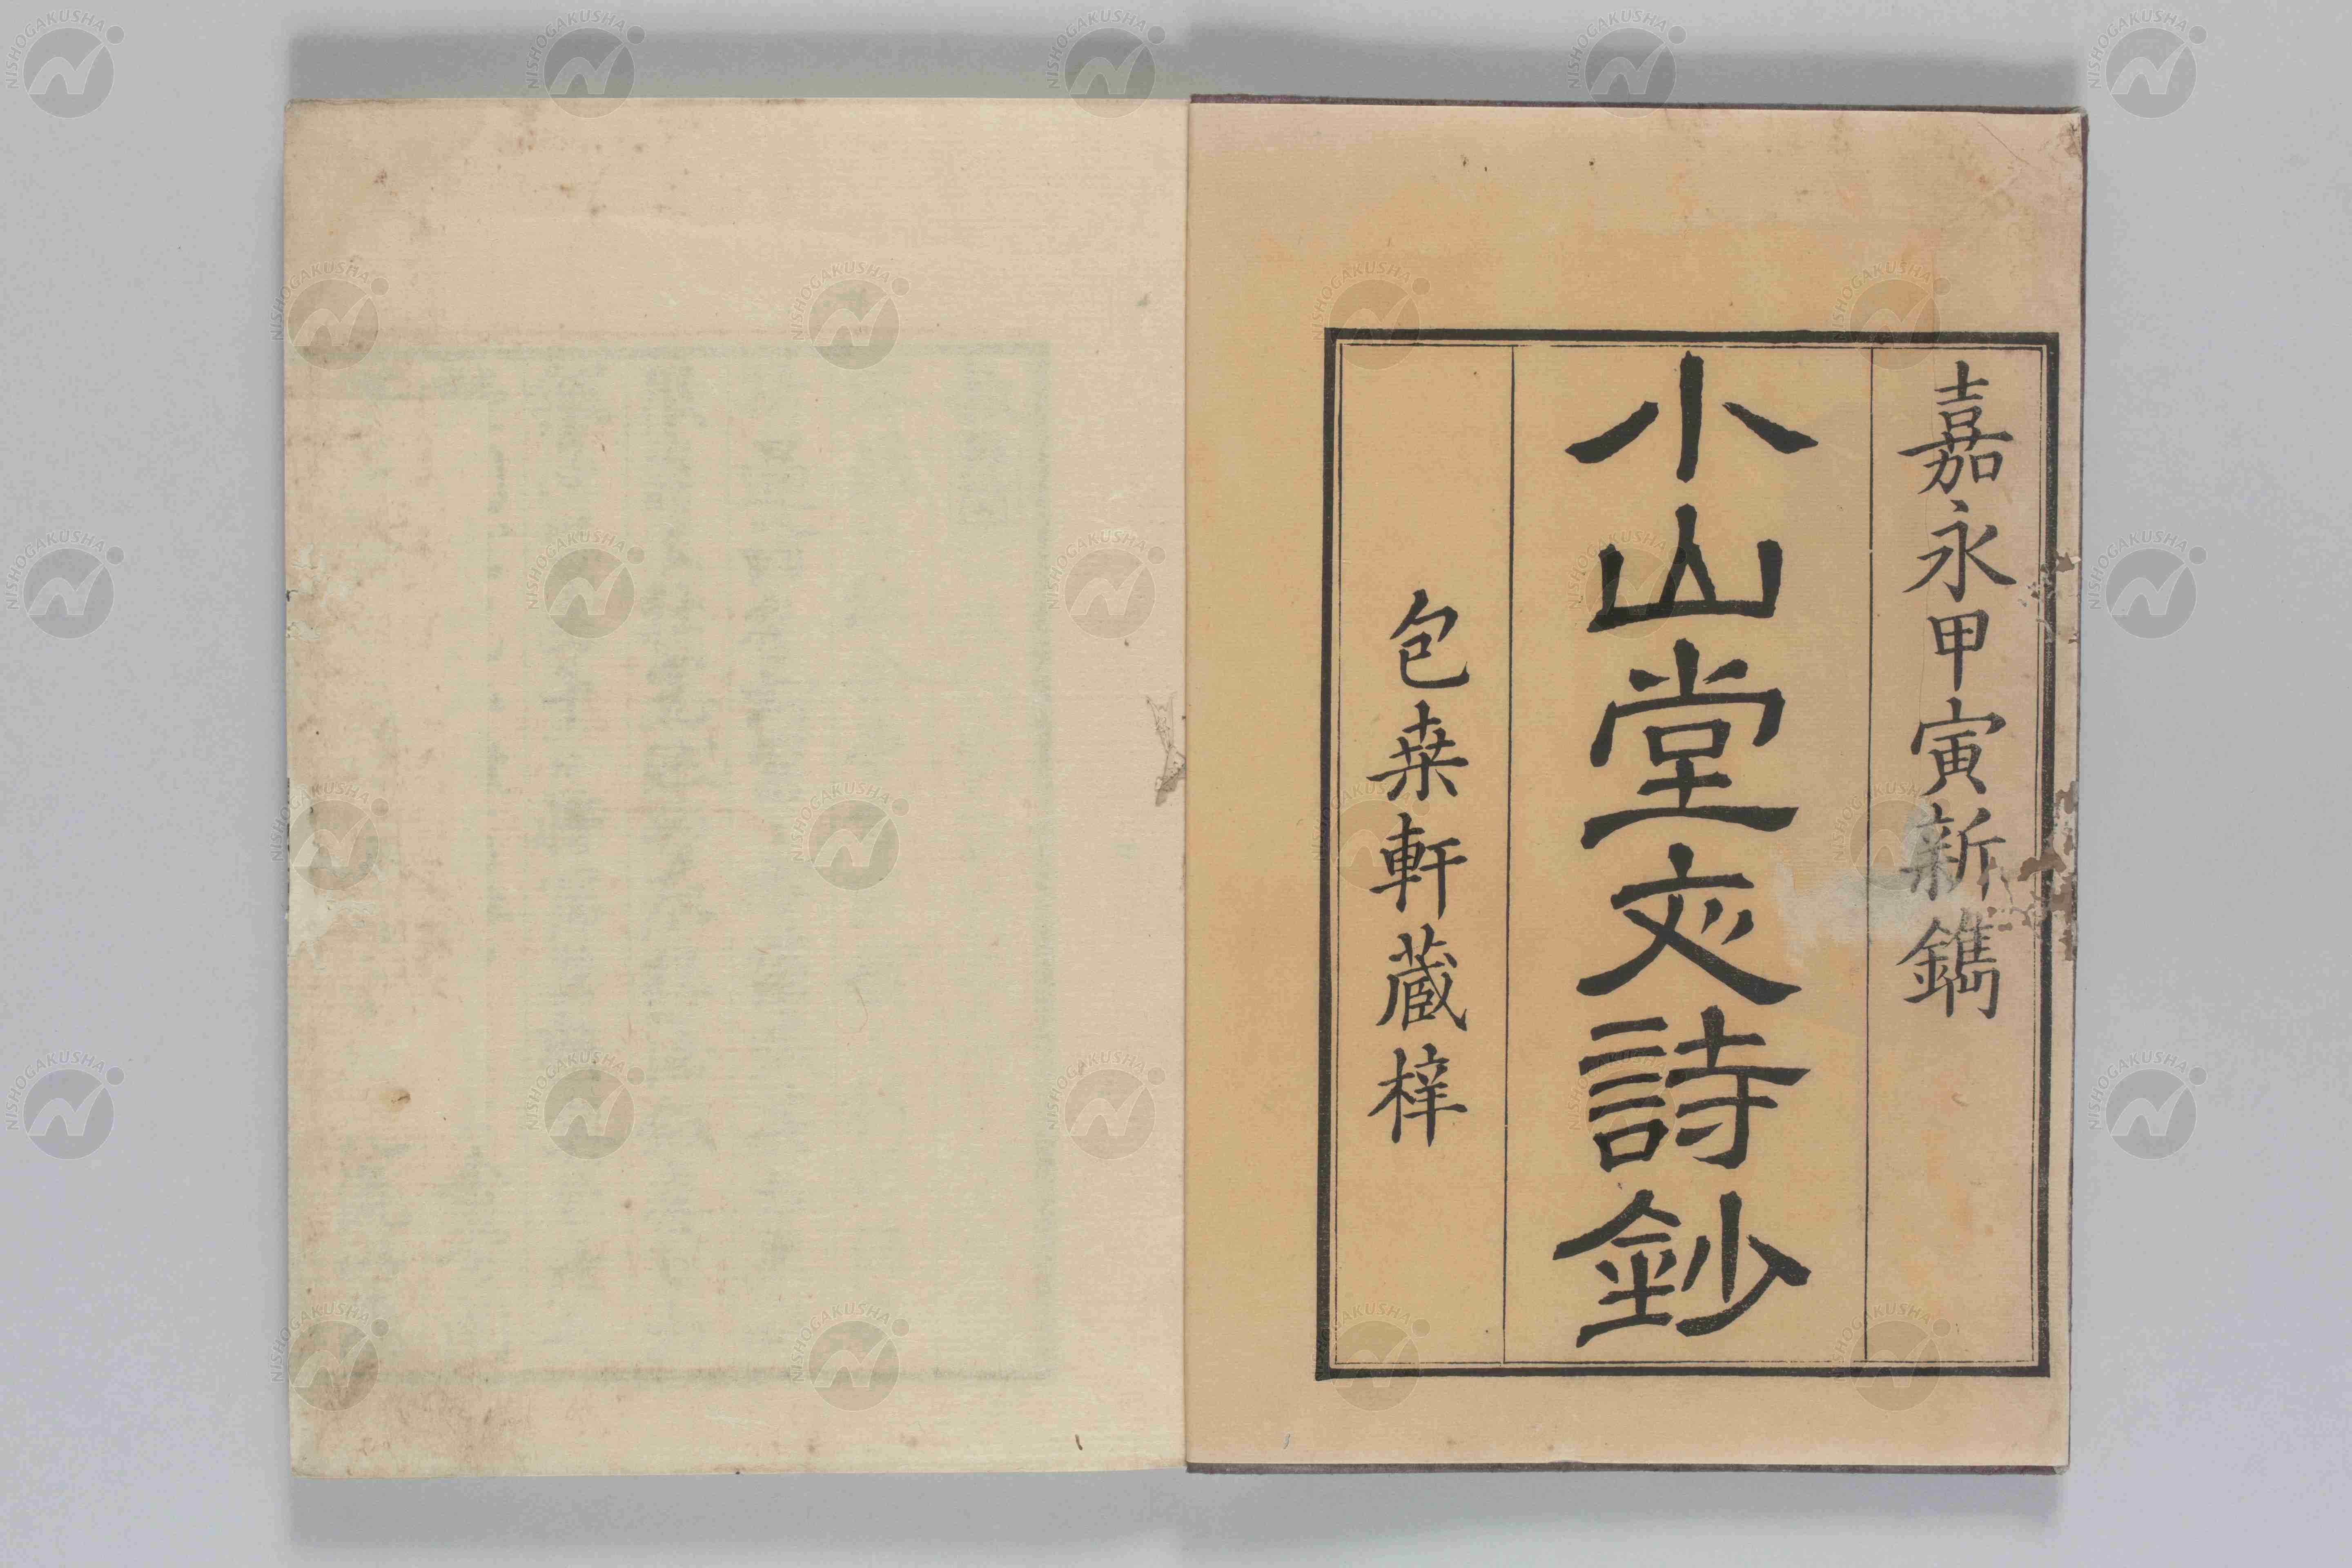 嘉永甲寅新鐫
小山堂文詩鈔
包桒軒蔵梓
NISHOGAKUSHA